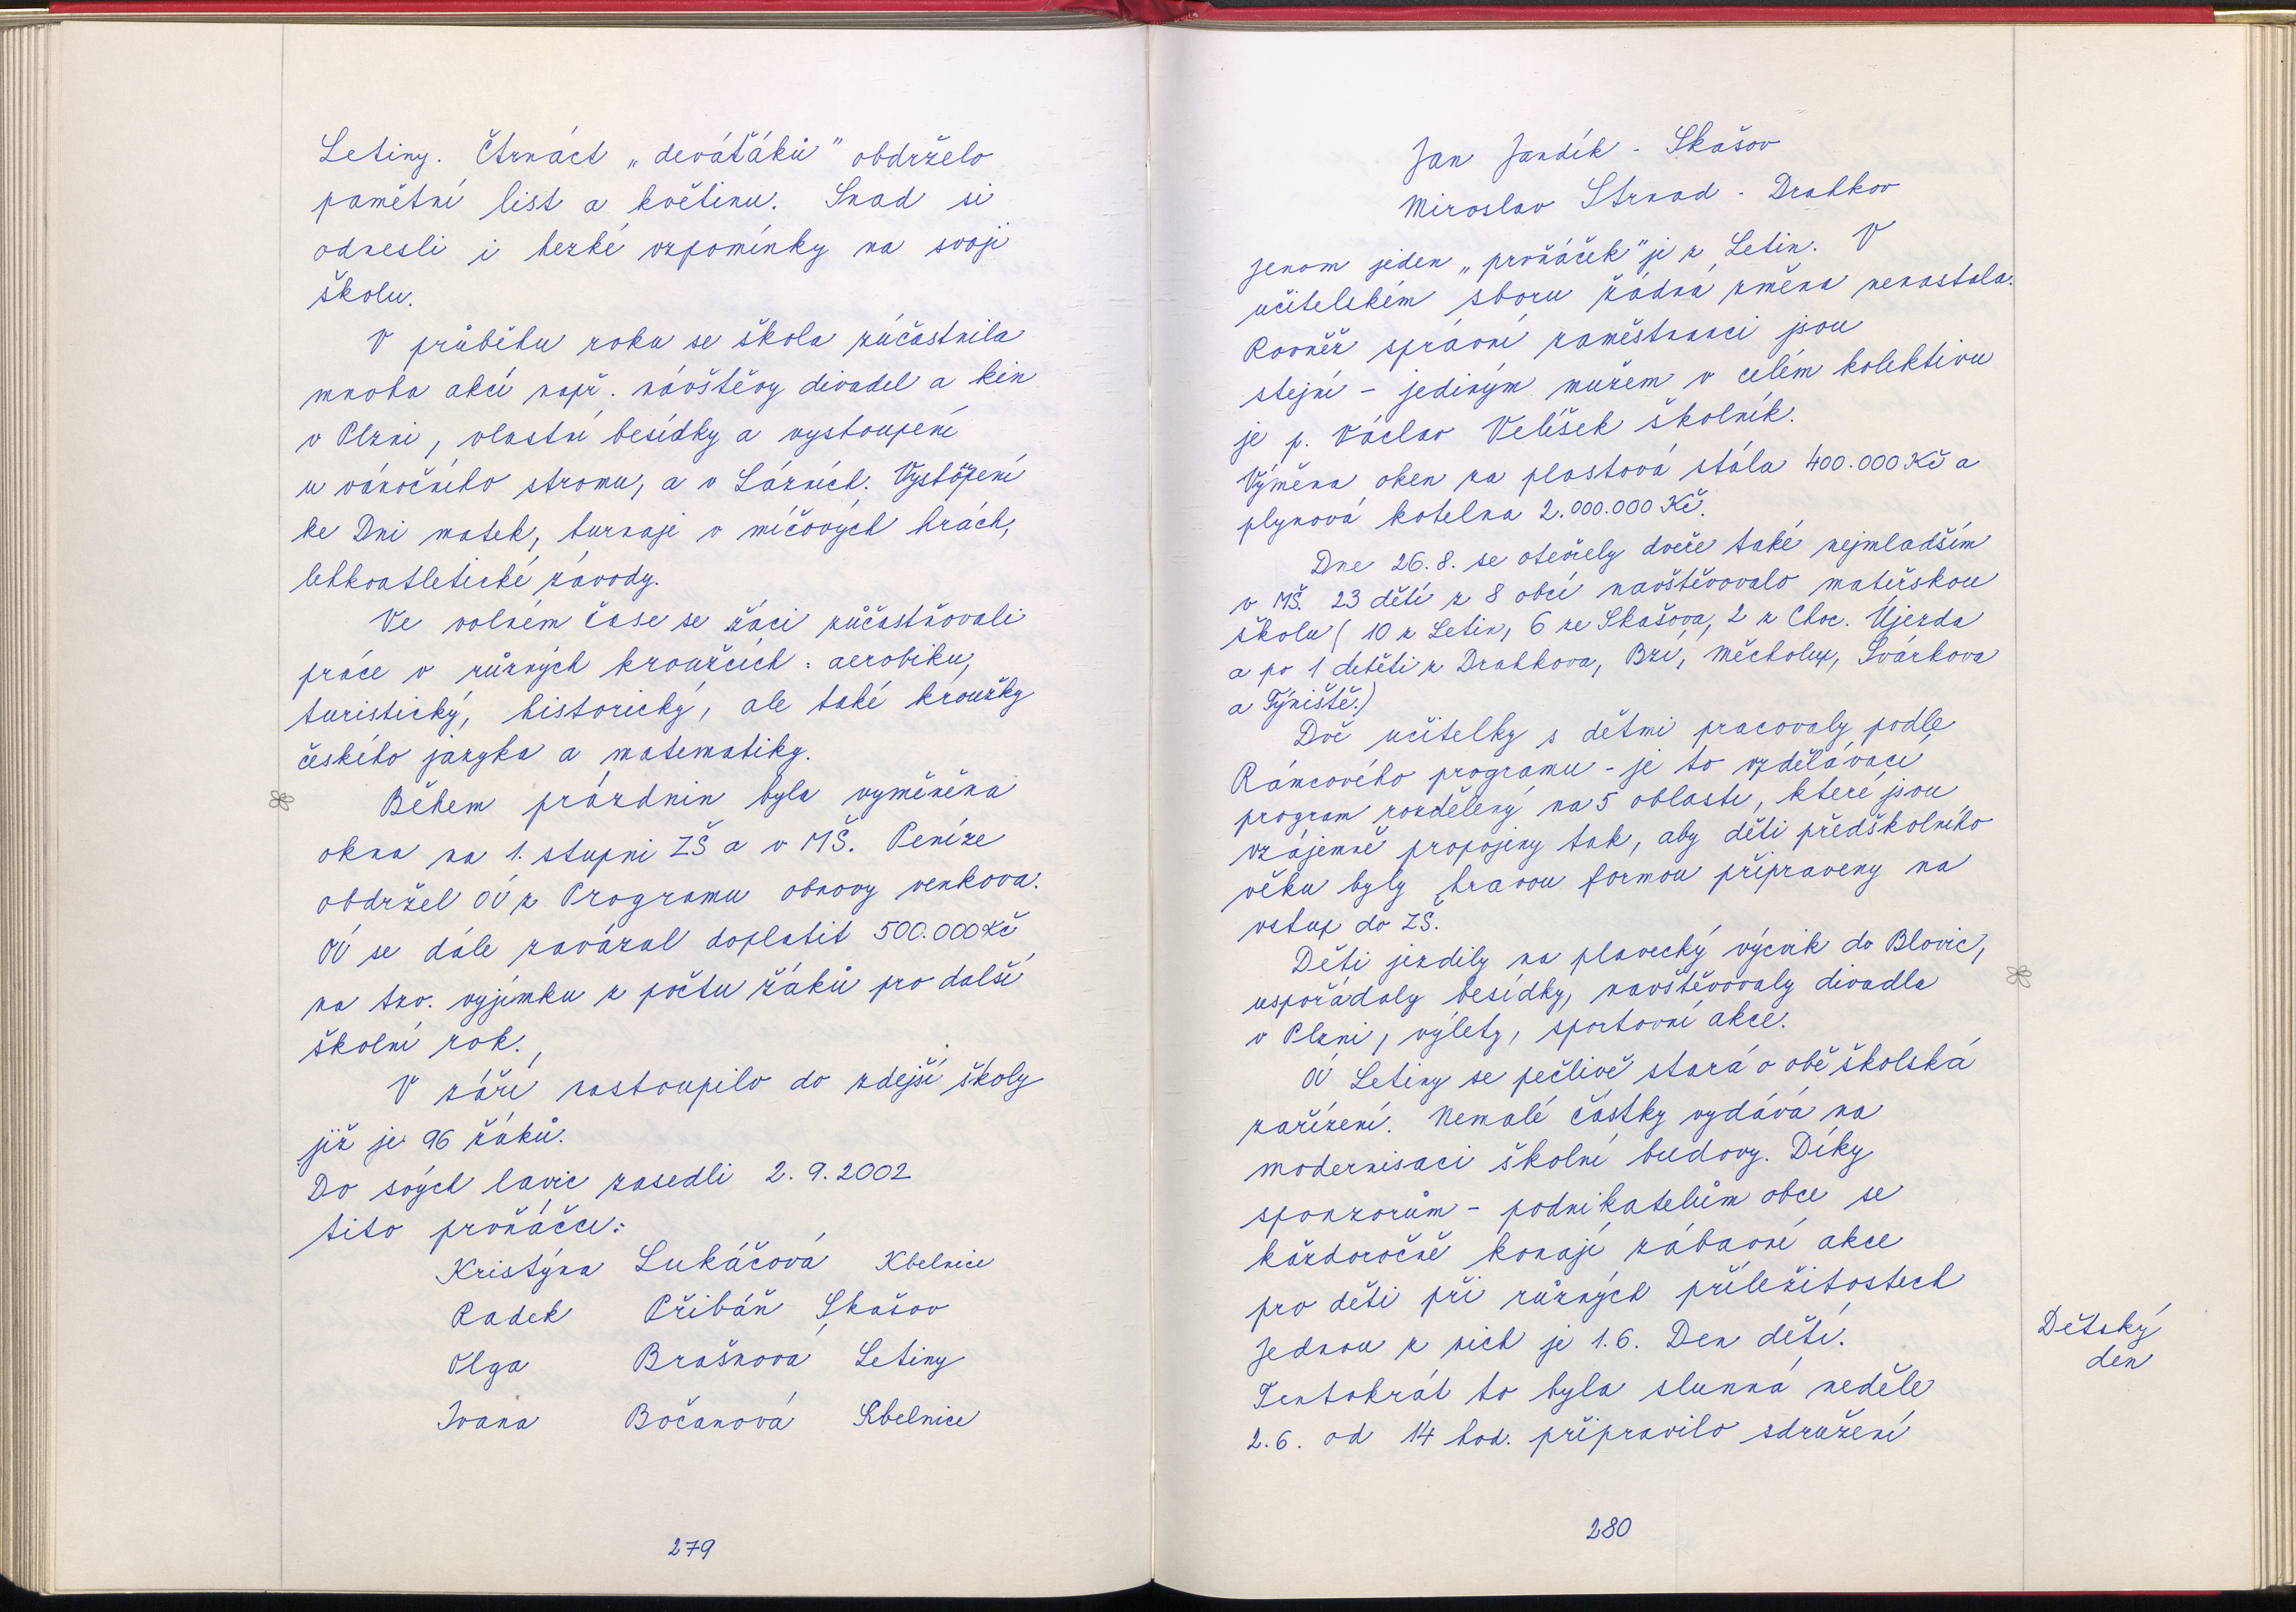 Letiny. Čtrnáct „deváťáků" obdrželo
pamětní list a květinu. Snad si
odnesli i hezké vzpomínky na svoji
školu.
V průběhu roku se škola zúčastnila
mnoha akcí např. návštěvy divadel a kin
v Plzni, vlastní besídky a vystoupení
u vánočního stromu, a v Lázních. Vystoupení
ke Dni matek, turnaje v míčových hrách,
lehkoatletické závody.
Ve volném čase se žáci zůčastňovali
práce v různých kroužcích: aerobiku,
turistický, historický, ale také kroužky
českého jazyka a matematiky.
Během prázdnin byla vyměněna
okna na 1. stupni ZŠ a v MŠ. Peníze
obdržel OÚ z Programu obnovy venkova.
OÚ se dále zavázal doplatit 500.000 Kč
na tzv. vyjímku z počtu žáků pro další
školní rok.
V září nastoupilo do zdejší školy
jíž je 96 žáků.
Do svých lavic zasedli 2. 9. 2002
tito prvňáčci:
Kristýna Lukáčová Kbelnice
Radek Přibáň Skašov
Olga Brašnová Letiny
Ivana Bočanová Kbelnice
279
Jan Jandík - Skašov
Miroslav Strnad - Drahkov
Jenom jeden „prvňáček" je z Letin. V
učitelském sboru žádná změna nenastala.
Rovněž správní zaměstnanci jsou
stejní - jediným mužem v celém kolektivu
je p. Václav Velíšek školník.
Výměna oken za plastová stála 400.000 Kč a
plynová kotelna 2.000.000 Kč.
Dne 26. 8. se otevřely dveře také nejmladším
v MŠ. 23 dětí z 8 obcí navštěvovalo mateřskou
školu ( 10 z Letin, 6 ze Skašova, 2 z Choc. Újezda
a po 1 dítěti z Drahkova, Bzí, Měcholup, Svárkova
a Týniště.)
Dvě učitelky s dětmi pracovaly podle
Rámcového programu - je to vzdělávací
program rozdělený na 5 oblastí, které jsou
vzájemně propojeny tak, aby děti předškolního
věku byly hravou formou připraveny na
vstup do ZŠ.
Děti jezdily na plavecký výcvik do Blovic,
uspořádaly besídky, navštěvovaly divadla
v Plzni, výlety, sportovní akce.
OÚ Letiny se pečlivě stará o obě školská
zařízení. Nemalé částky vydává na
modernisaci školní budovy. Díky
sponzorům - podnikatelům obce se
každoročně konají zábavné akce
pro děti při různých příležitostech
Jednou z nich je 1. 6. Den dětí.
Tentokrát to byla slunná neděle
2. 6. od 14 hod. připravilo sdružení
Dětský
den
280